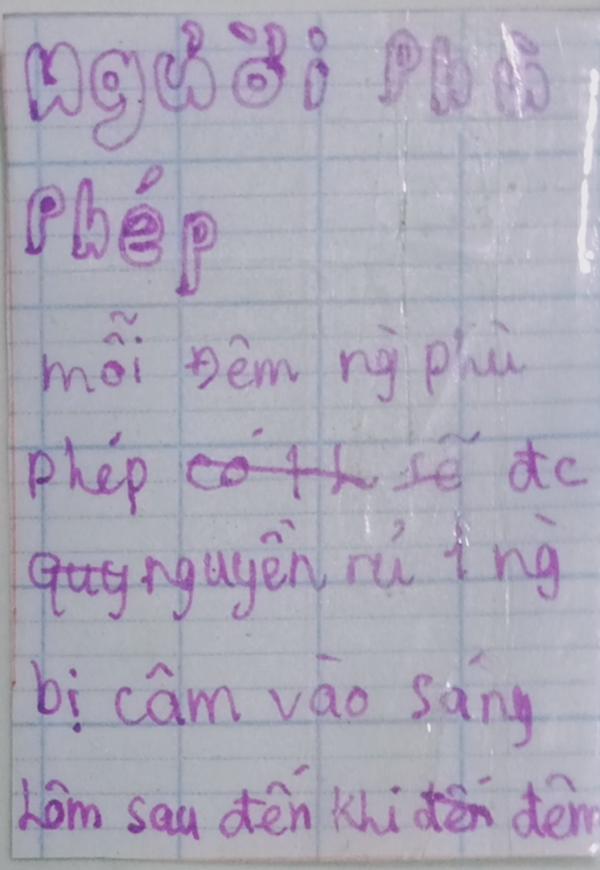 Người Phù
Phép
mỗi Đêm ng` phù
phép có th sẽ đc
Quy nguyền rủ 1 ng`
bị câm vào sáng
hôm sau đến khi đến đêm